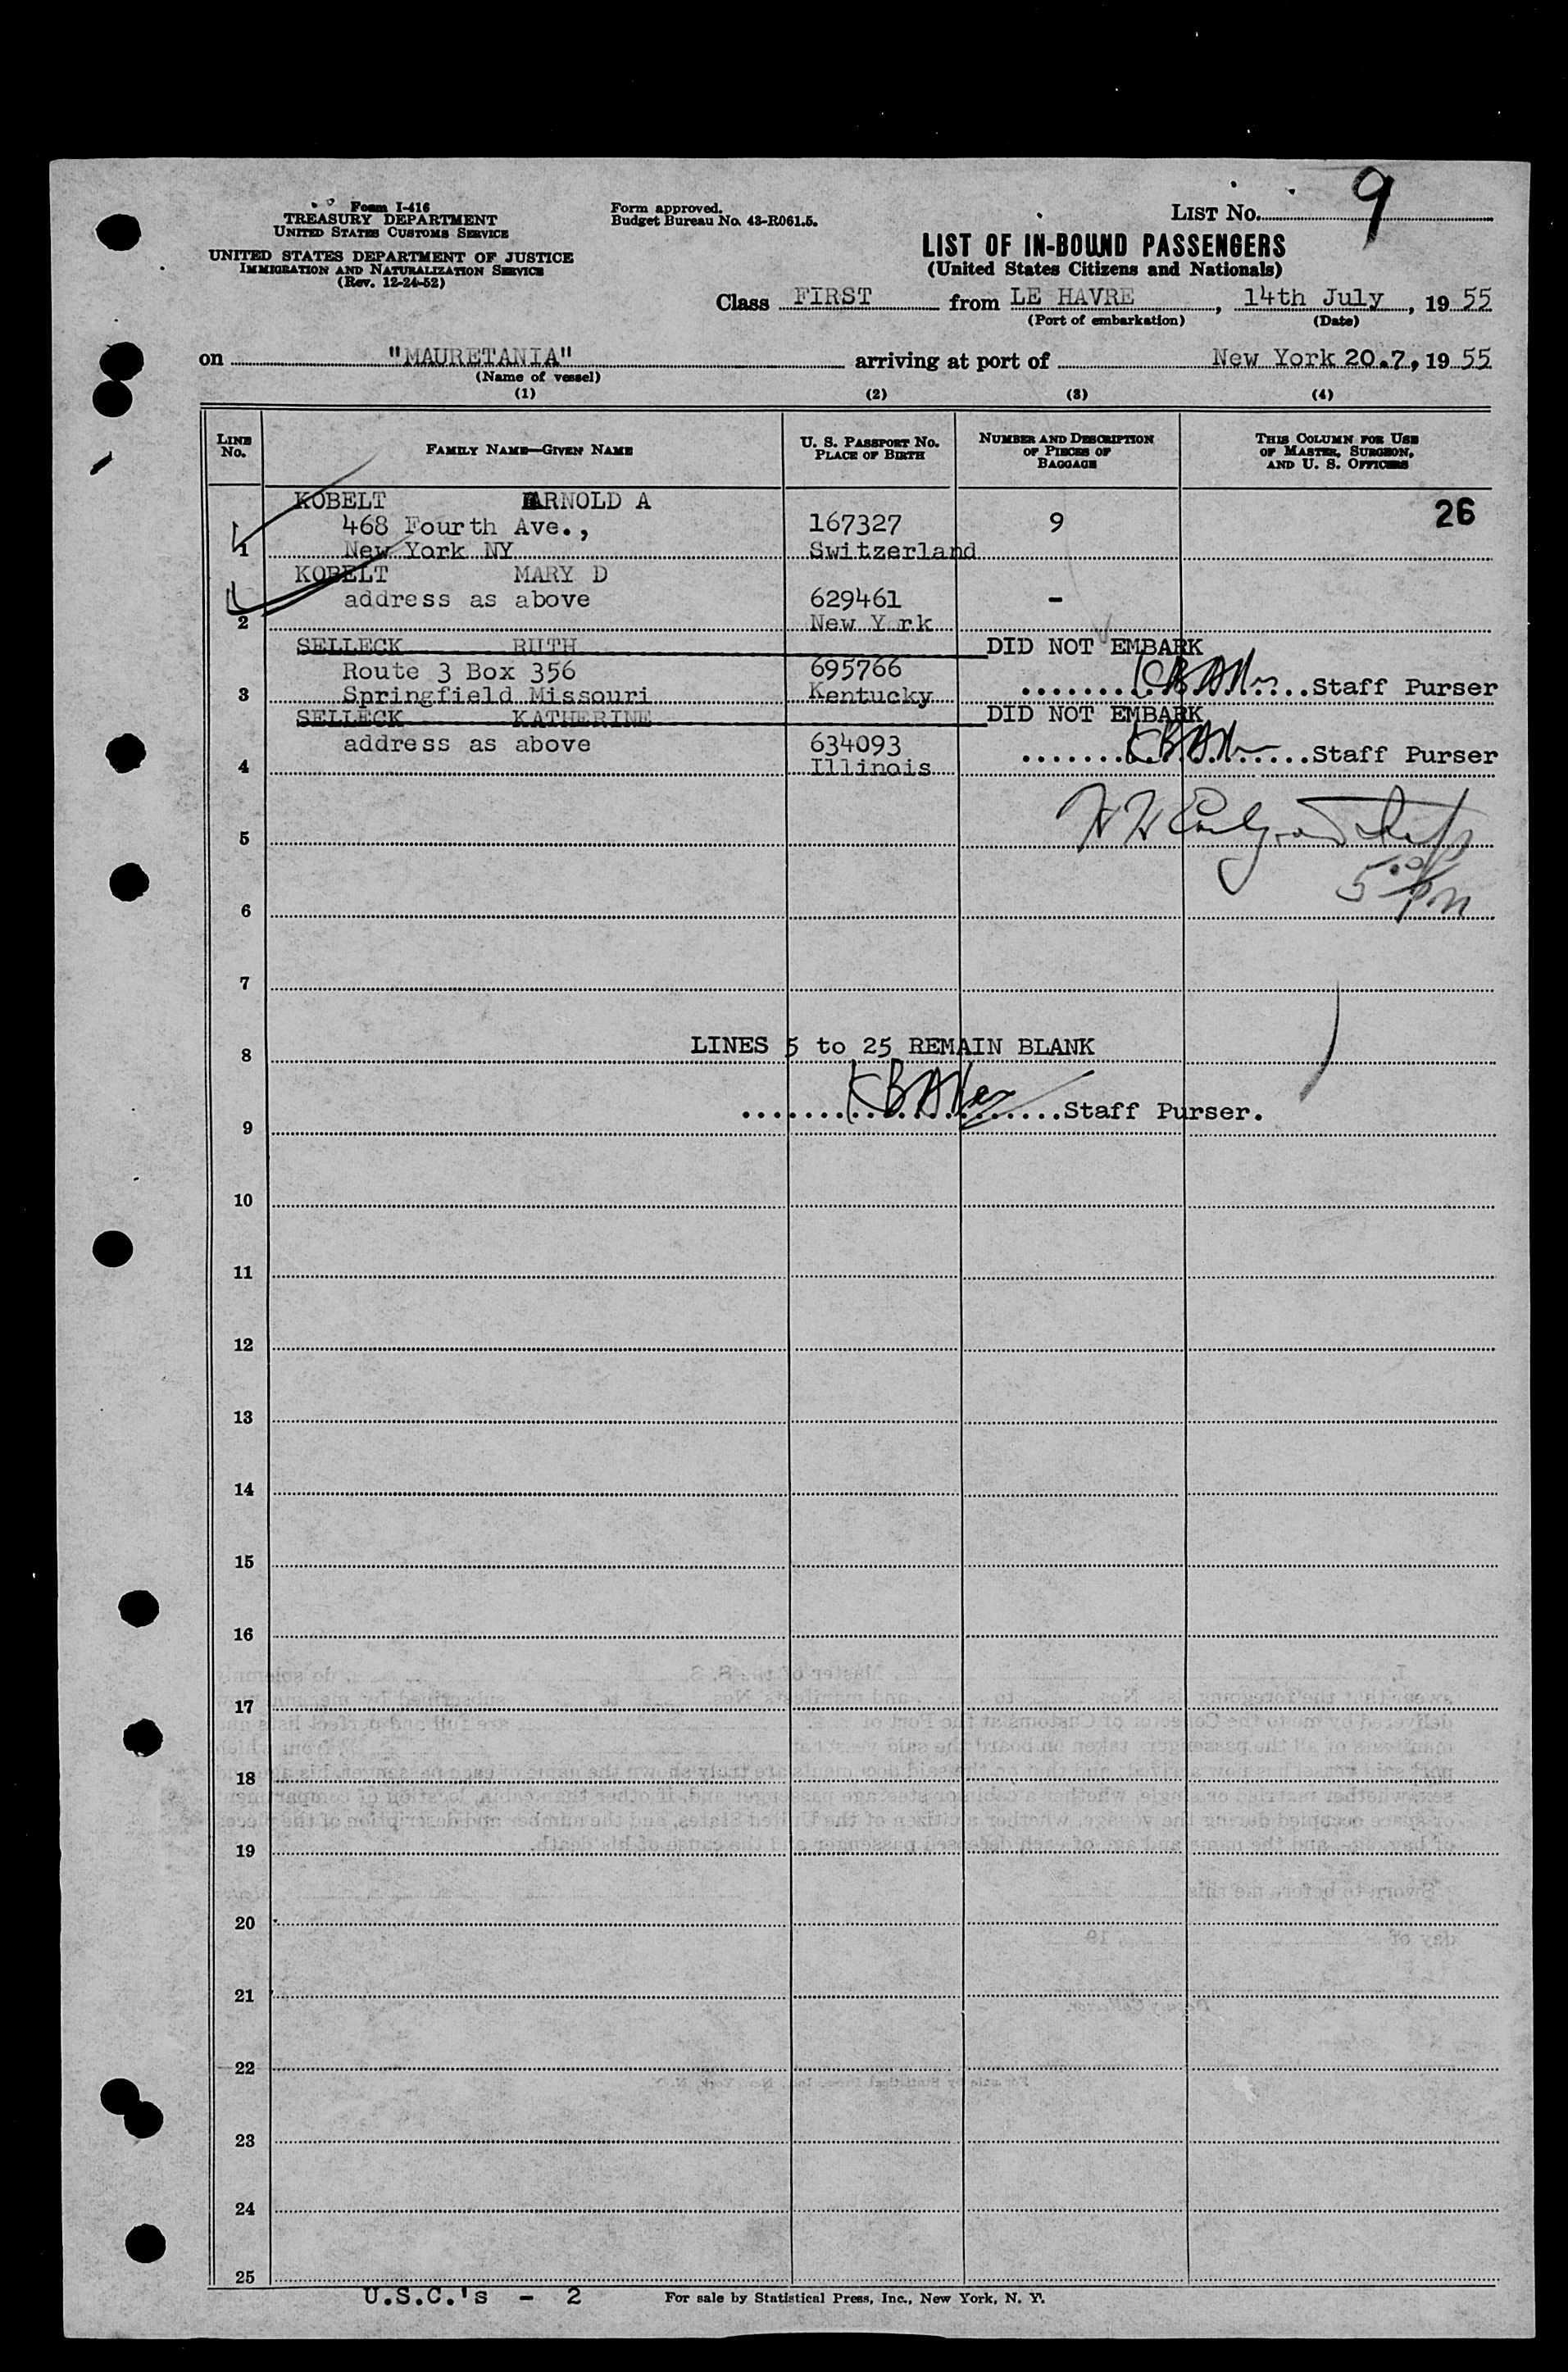 Form I-416
TREASURY DEPARTMENT
UNITED STATES CUSTOMS SERVICE
UNITED STATES DEPARTMENT OF JUSTICE
IMMIGRATION AND NATURALIZATION SERVICE
(Rev. 12-24-52)
Form approved.
Budget Bureau No. 43-R061.5.
LIST NO. 9
LIST OF IN-BOUND PASSENGERS
(United States Citizens and Nationals)
Class FIRST from LE HAVRE, 14th July, 19 55
(Port of embarkation) (Date)
on "MAURETANIA" arriving at port of New York 20.7, 19 55
(Name of vessel)
(1) (2) (3) (4)
LINE No. FAMILY NAME—GIVEN NAME U. S. PASSPORT NO. PLACE OF BIRTH NUMBER AND DESCRIPTION OF PIECES OF BAGGAGE THIS COLUMN FOR USE OF MASTER, SURGEON, AND U. S. OFFICERS
KOBELT ARNOLD A 26
468 Fourth Ave., 167327 9
1 New York NY Switzerland
KOBELT MARY D
address as above 629461 -
2 New Y rk
SELLECK RUTH DID NOT EMBARK
Route 3 Box 356 695766
3 Springfield Missouri Kentucky Staff Purser
SELLECK KATHERINE DID NOT EMBARK
address as above 634093 Staff Purser
4 Illinois
5
5 00 PM
6
7
LINES 5 to 25 REMAIN BLANK
8
Staff Purser.
9
10
11
12
13
14
15
16
17
18
19
20
21
22
23
24
25
U.S.C.'s - 2 For sale by Statistical Press, Inc., New York, N. Y.